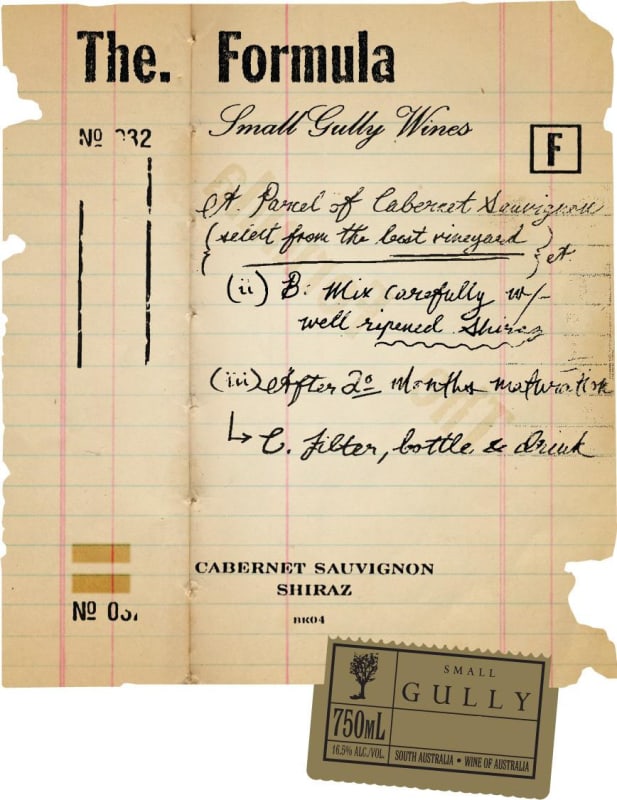 The. Formula
Small Gully Wines
Nº 032
F
A. Parcel of Cabernet Sauvignon
(select from the best vineyard)
(ii) B: Mix carefully w/-
well ripened Shiraz
(iii) After 20 Months maturation
↳ C. filter, bottle & drink
CABERNET SAUVIGNON
SHIRAZ
BK04
Nº 03
SMALL
GULLY
750ML
16.5% ALC./VOL.
SOUTH AUSTRALIA • WINE OF AUSTRALIA